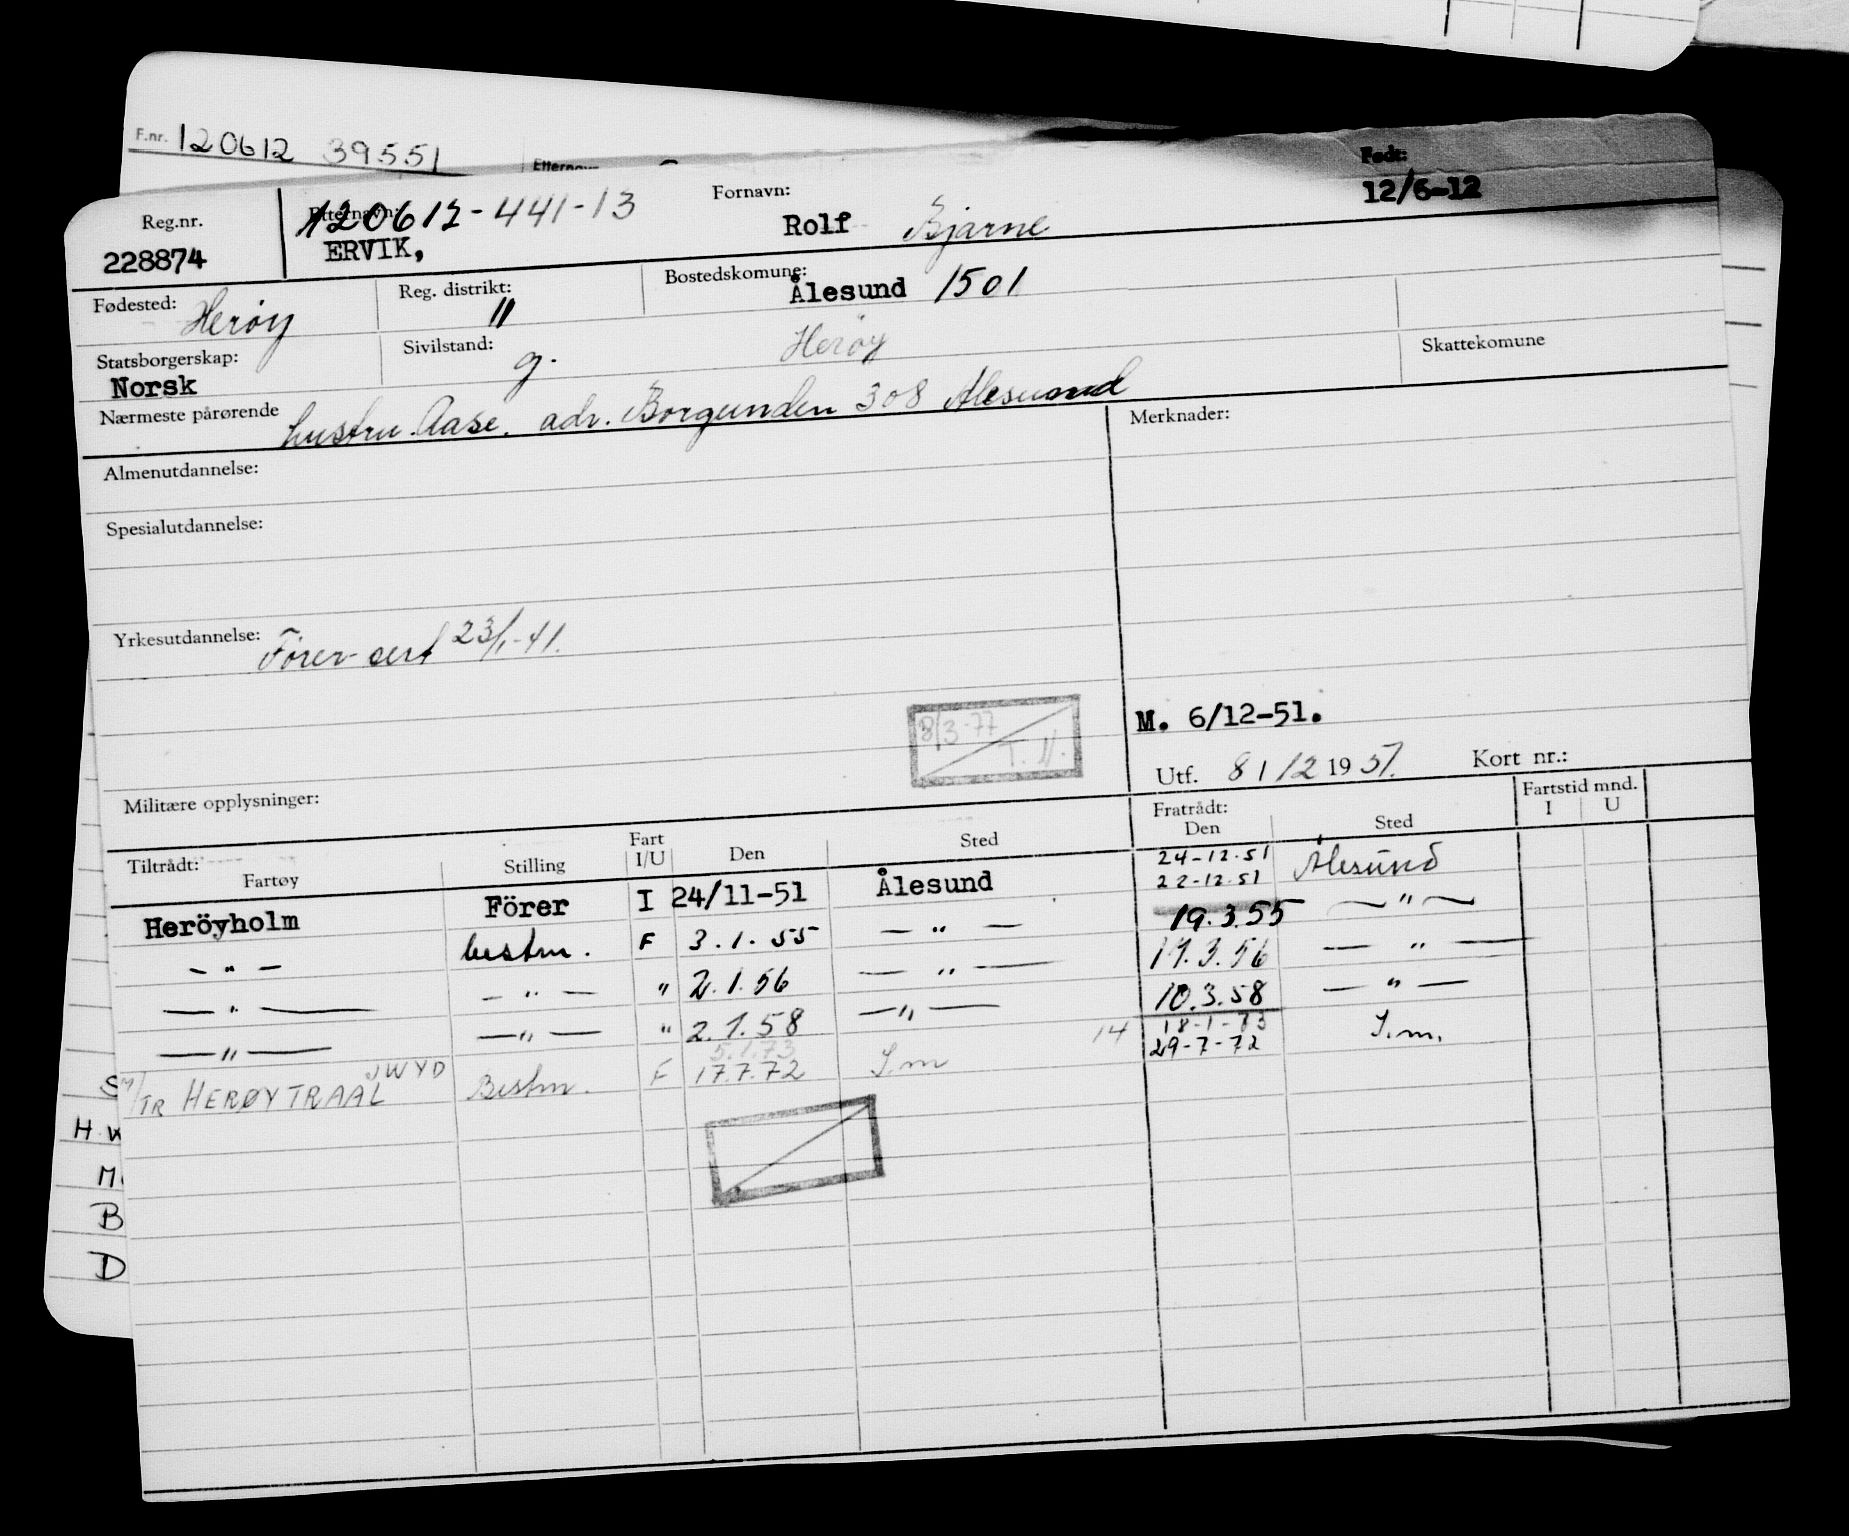 F.nr. 120612 39551
Etternavn
Reg.nr. Etternavn: 120612-441-13 Fornavn: Født:
228874 ERVIK, Rolf Bjarne 12/6-12
Fødested: Herøy Reg. distrikt: " Bostedskomune: Ålesund 1501
Statsborgerskap: Norsk Sivilstand: g. Herøy Skattekomune
Nærmeste pårørende hustru Aase. adr. Borgunden 308 Alesund Merknader:
Almenutdannelse:
Spesialutdannelse:
Yrkesutdannelse: Förer cert 23/1-41.
8/3-77
M. 6/12-51.
Utf. 8 / 12 1951. Kort nr.:
Militære opplysninger:
Tiltrådt: Fratrådt: Fartstid mnd.
Fartøy Stilling Fart I/U Den Sted Den Sted I U
24-12-51
Heröyholm Förer I 24/11-51 Ålesund 22-12-51 Ålesund
— " — bestm. F 3.1.55 — " — 19.3.55 — " —
— " — — " — " 2.1.56 — " — 17.3.56 — " —
— " — — " — " 2.1.58 — " — 10.3.58 — " —
JWYD 5.1.73 14 18-1-73
M/TR HERØYTRAAL Bestm. F 17.7.72 S.m 29-7-72 S.m.
S
H.W
M
B
D